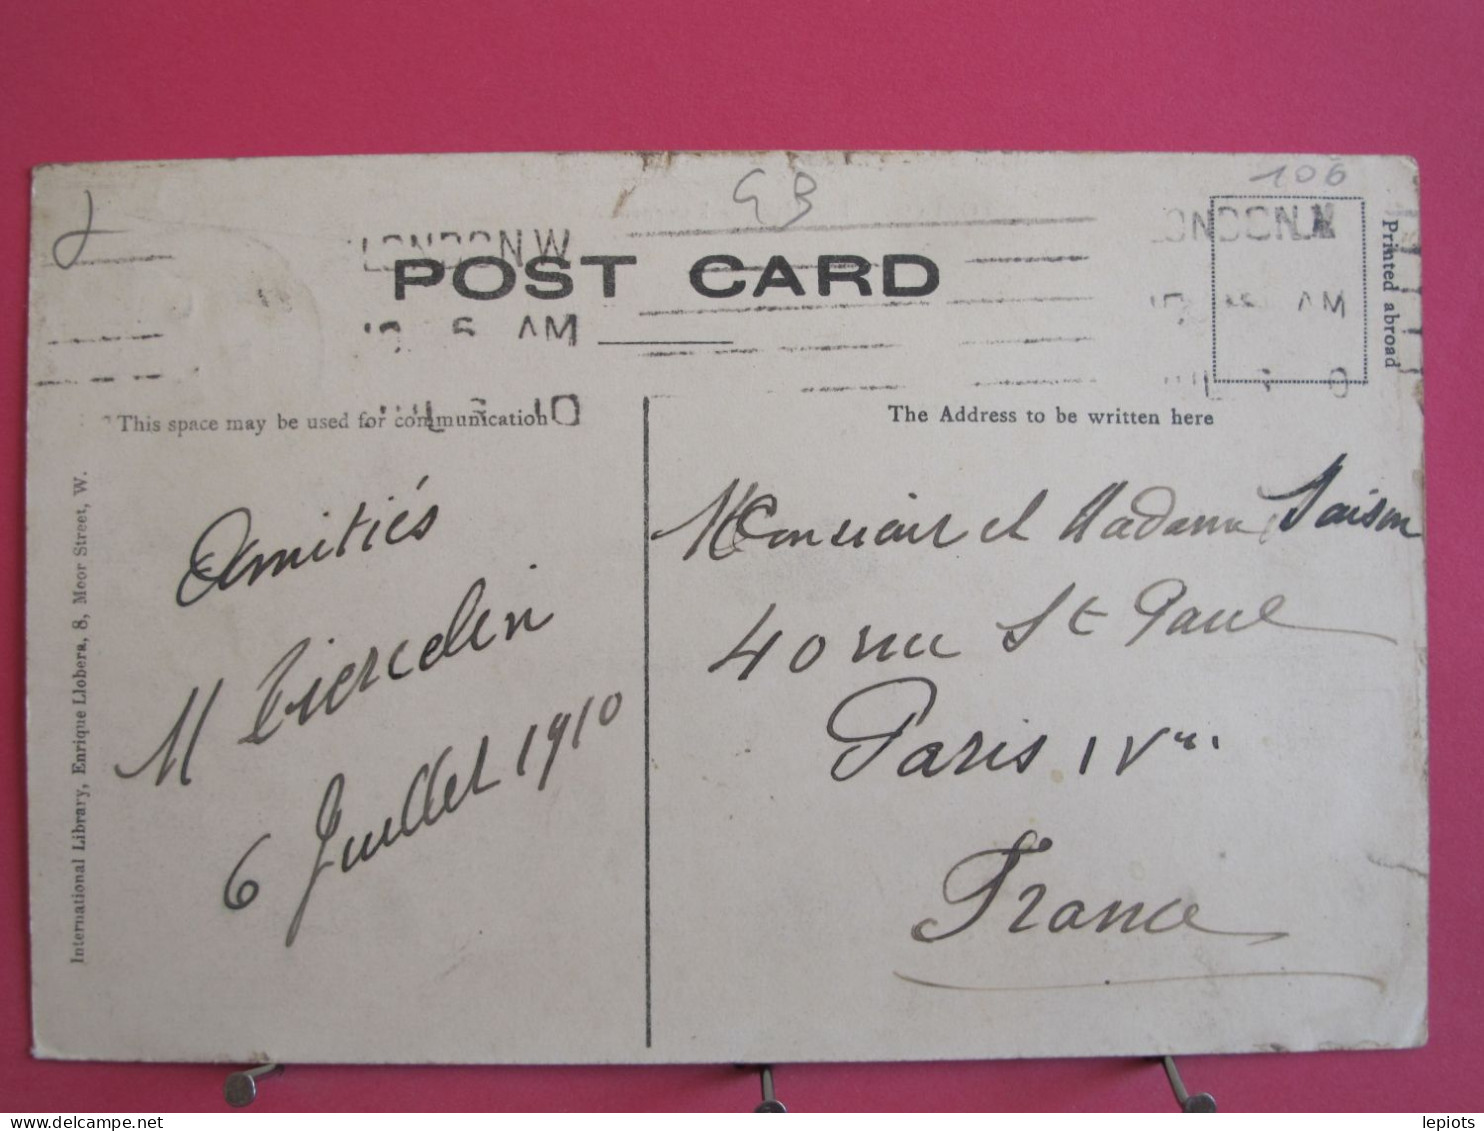 106
GB
LONDON.W
POST CARD
AM
10
LONDON.W
AM
Printed abroad
This space may be used for communication
The Address to be written here
International Library, Enrique Llobera, 8, Moor Street, W.
Amitiés
M Ciercelin
6 Juillet 1910
Monsieur et Madame
40 rue St Paul
Paris IVme
France
lepiots